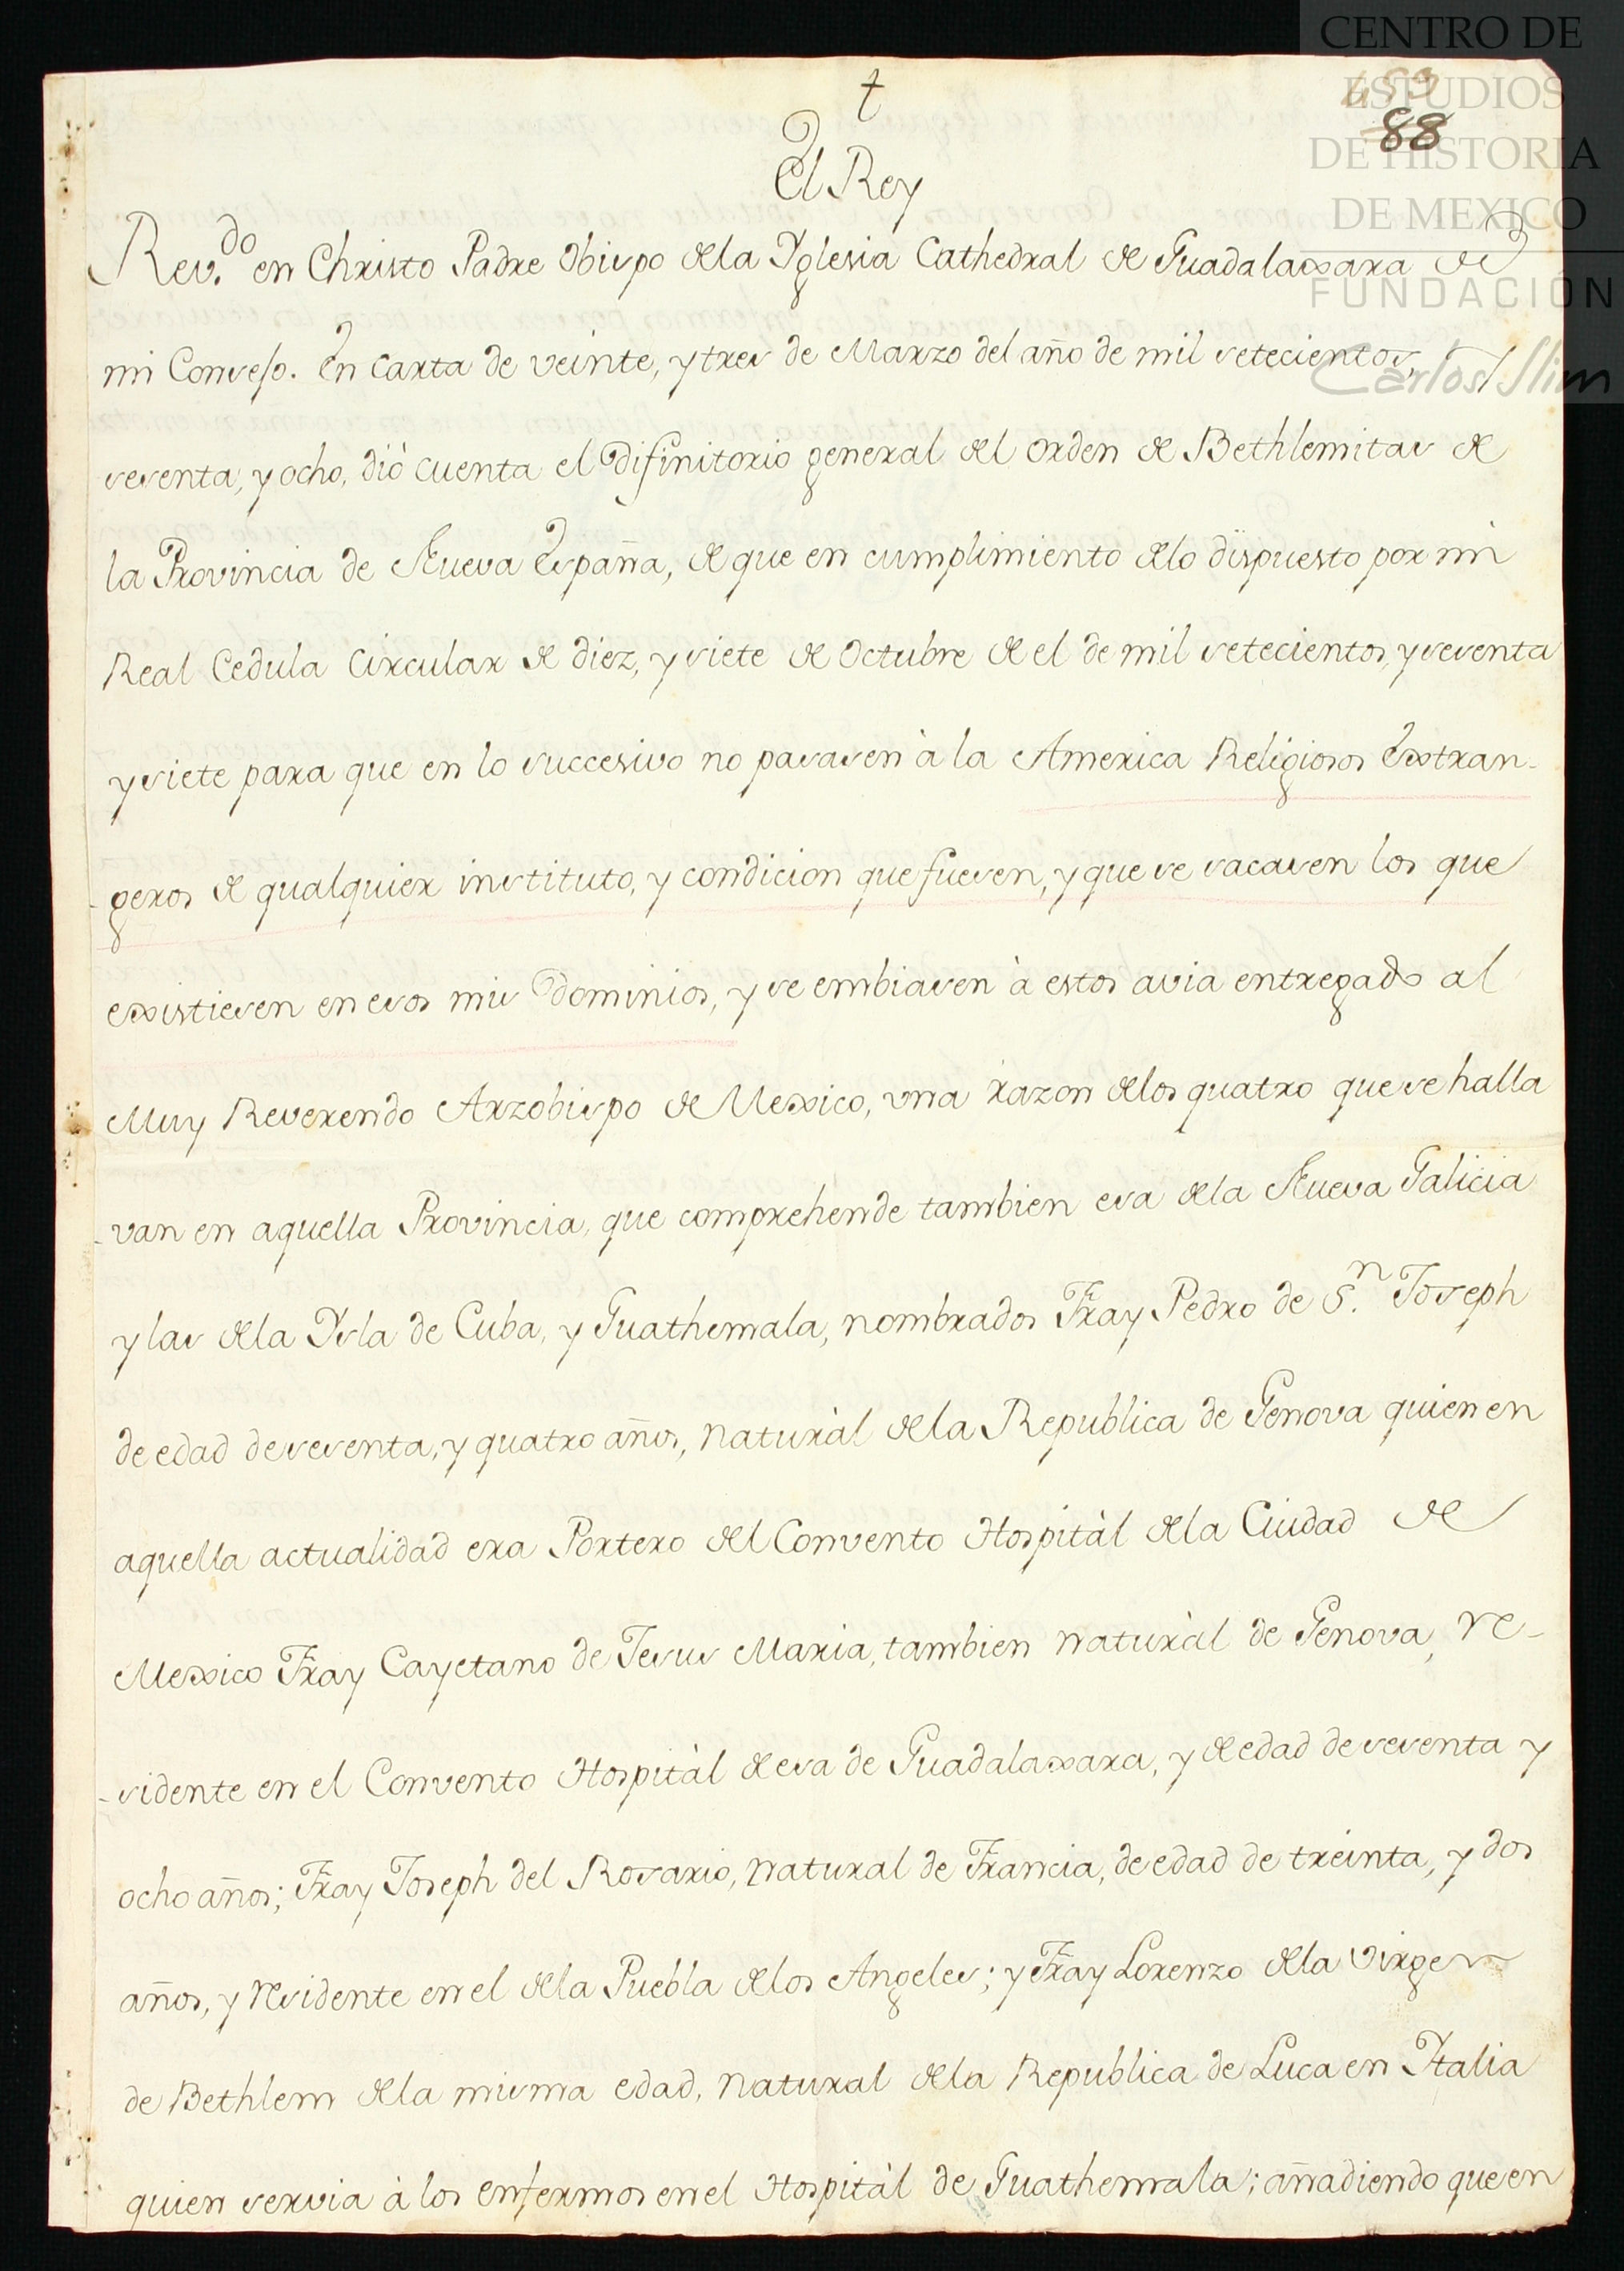 CENTRO DE
ESTUDIOS
DE HISTORIA
DE MEXICO
FUNDACIÓN
Carlos Slim
88
†
El Rey
Rev.do en Christo Padre Obispo dela Yglesia Cathedral de Guadalaxara de
mi Consejo. En Carta de veinte, y tres de Marzo del año de mil setecientos,
sesenta, y ocho, dió cuenta el Difinitorio general del orden de Bethlemitas de
la Provincia de Nueva España, de que en cumplimiento delo dispuesto por mi
Real Cedula Circular de diez, y siete de Octubre de el de mil setecientos, y sesenta
y siete para que en lo succesivo no pasasen à la America Religiosos Extran-
-geros de qualquier instituto, y condicion que fuesen, y que se sacasen los que
existiesen en esos mis Dominios, y se embiasen à estos avia entregado al
Muy Reverendo Arzobispo de Mexico, una razon delos quatro que se halla
-van en aquella Provincia, que comprehende tambien esa dela Nueva Galicia
y las dela Ysla de Cuba, y Guathemala, nombrados Fray Pedro de S.n Joseph
de edad de sesenta, y quatro años, naturàl dela Republica de Genova quien en
aquella actualidad era Portero del Convento Hospitàl dela Ciudad de
Mexico Fray Cayetano de Jesus Maria, tambien naturàl de Genova, re-
-sidente en el Convento Hospitàl de esa de Guadalaxara, y de edad de sesenta y
ocho años; Fray Joseph del Rosario, natural de Francia, de edad de treinta, y dos
años, y residente en el dela Puebla delos Angeles; y Fray Lorenzo dela Virgen
de Bethlem dela misma edad, natural dela Republica de Luca en Ytalia
quien servia à los enfermos en el Hospitàl de Guathemala; añadiendo que en